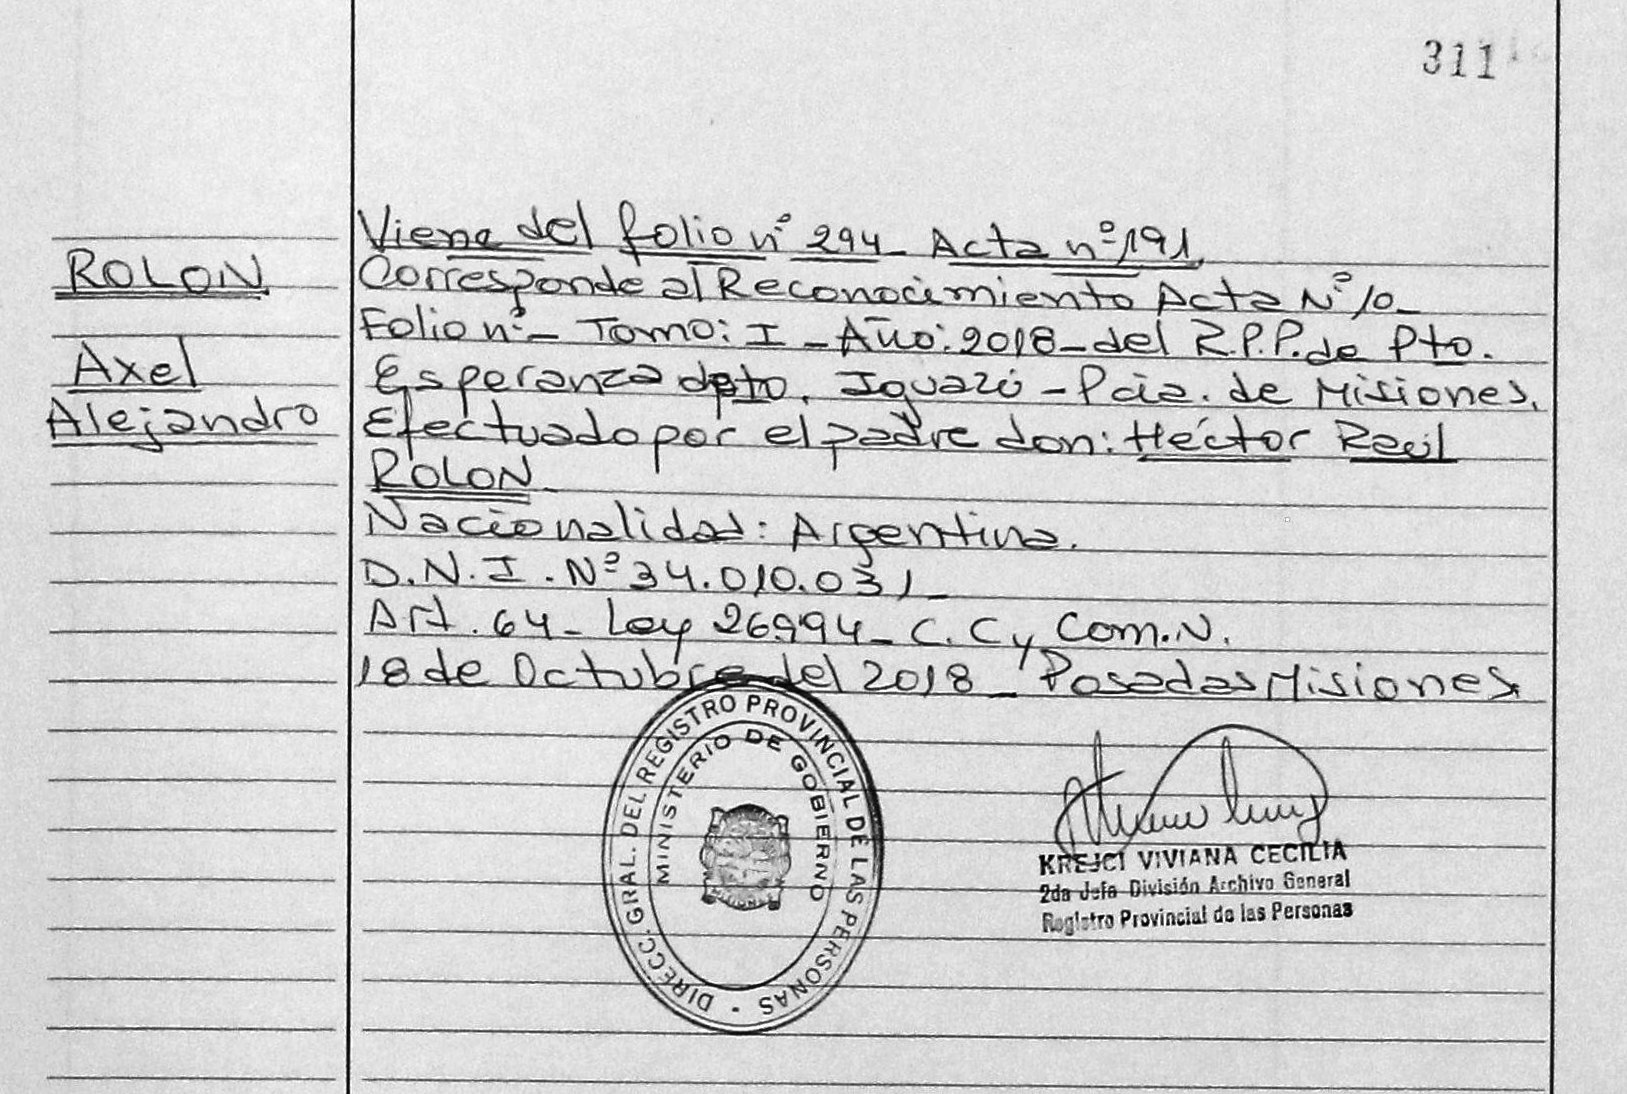 311
ROLON
Axel
Alejandro
Viene del folio nº 294 - Acta nº 191,
Corresponde al Reconocimiento Acta Nº 10-
Folio nº - Tomo: I - Año: 2018 - del R.P.P. de Pto.
Esperanza dpto. Iguazú - Pcia. de Misiones.
Efectuado por el padre don: Héctor Raúl
ROLON
Nacionalidad: Argentina.
D.N.I. Nº 34.010.031-
Art. 64 - Ley 26994 - C. C y Com. N.
18 de Octubre del 2018 - Posadas Misiones
DIRECC. GRAL. DEL REGISTRO PROVINCIAL DE LAS PERSONAS
MINISTERIO DE GOBIERNO
KREJCI VIVIANA CECILIA
2da Jefa División Archivo General
Registro Provincial de las Personas